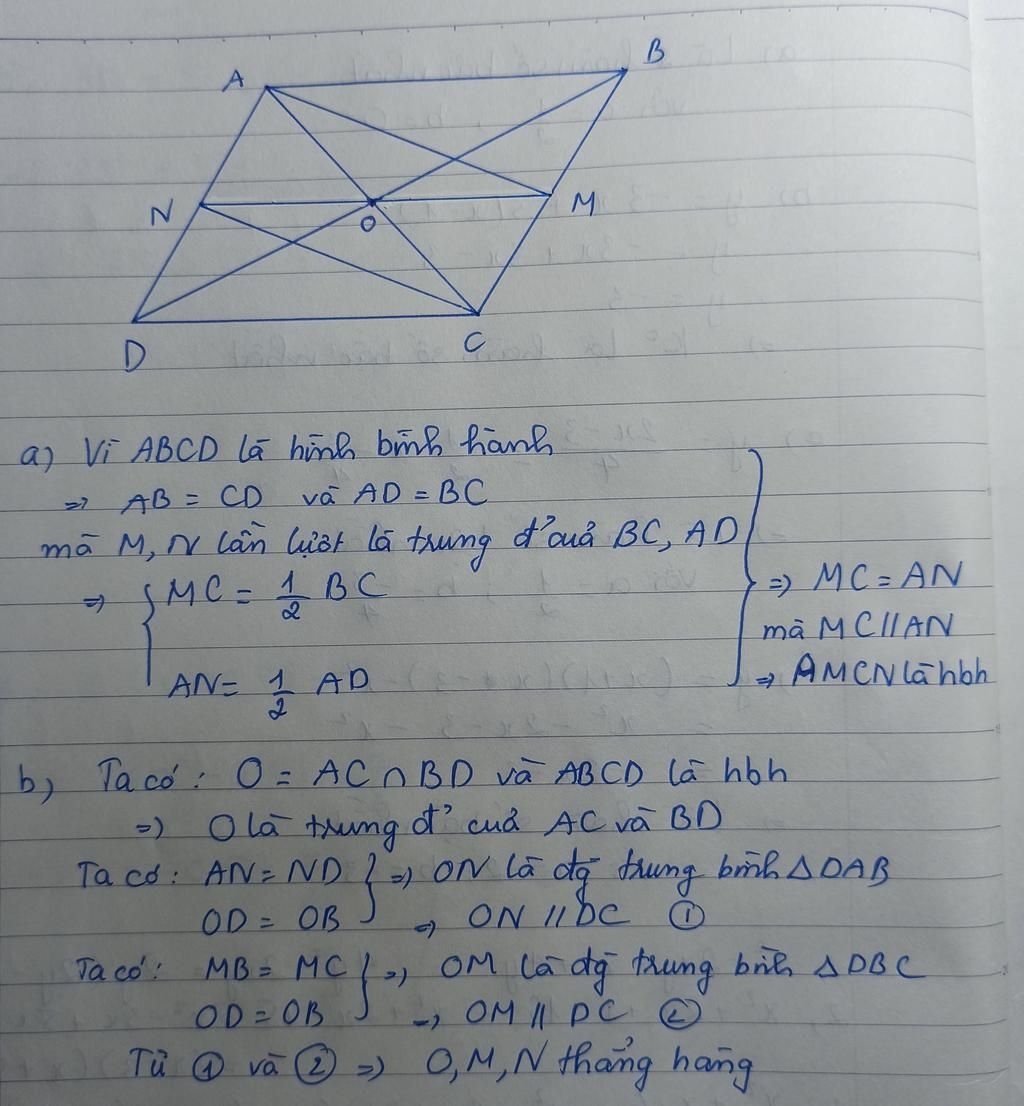 A
B
N
O
M
D
C
a) Vì ABCD là hình bình hành
=> AB = CD và AD = BC
mà M, N lần lượt là trung đ' của BC, AD
=> { MC = 1/2 BC
AN = 1/2 AD
=> MC = AN
mà MC // AN
=> AMCN là hbh
b) Ta có: O = AC ∩ BD và ABCD là hbh
=> O là trung đ' của AC và BD
Ta có: AN = ND } => ON là đg trung bình △DAB
OD = OB => ON // DC ①
Ta có: MB = MC } => OM là đg trung bình △DBC
OD = OB => OM // DC ②
Từ ① và ② => O, M, N thẳng hàng